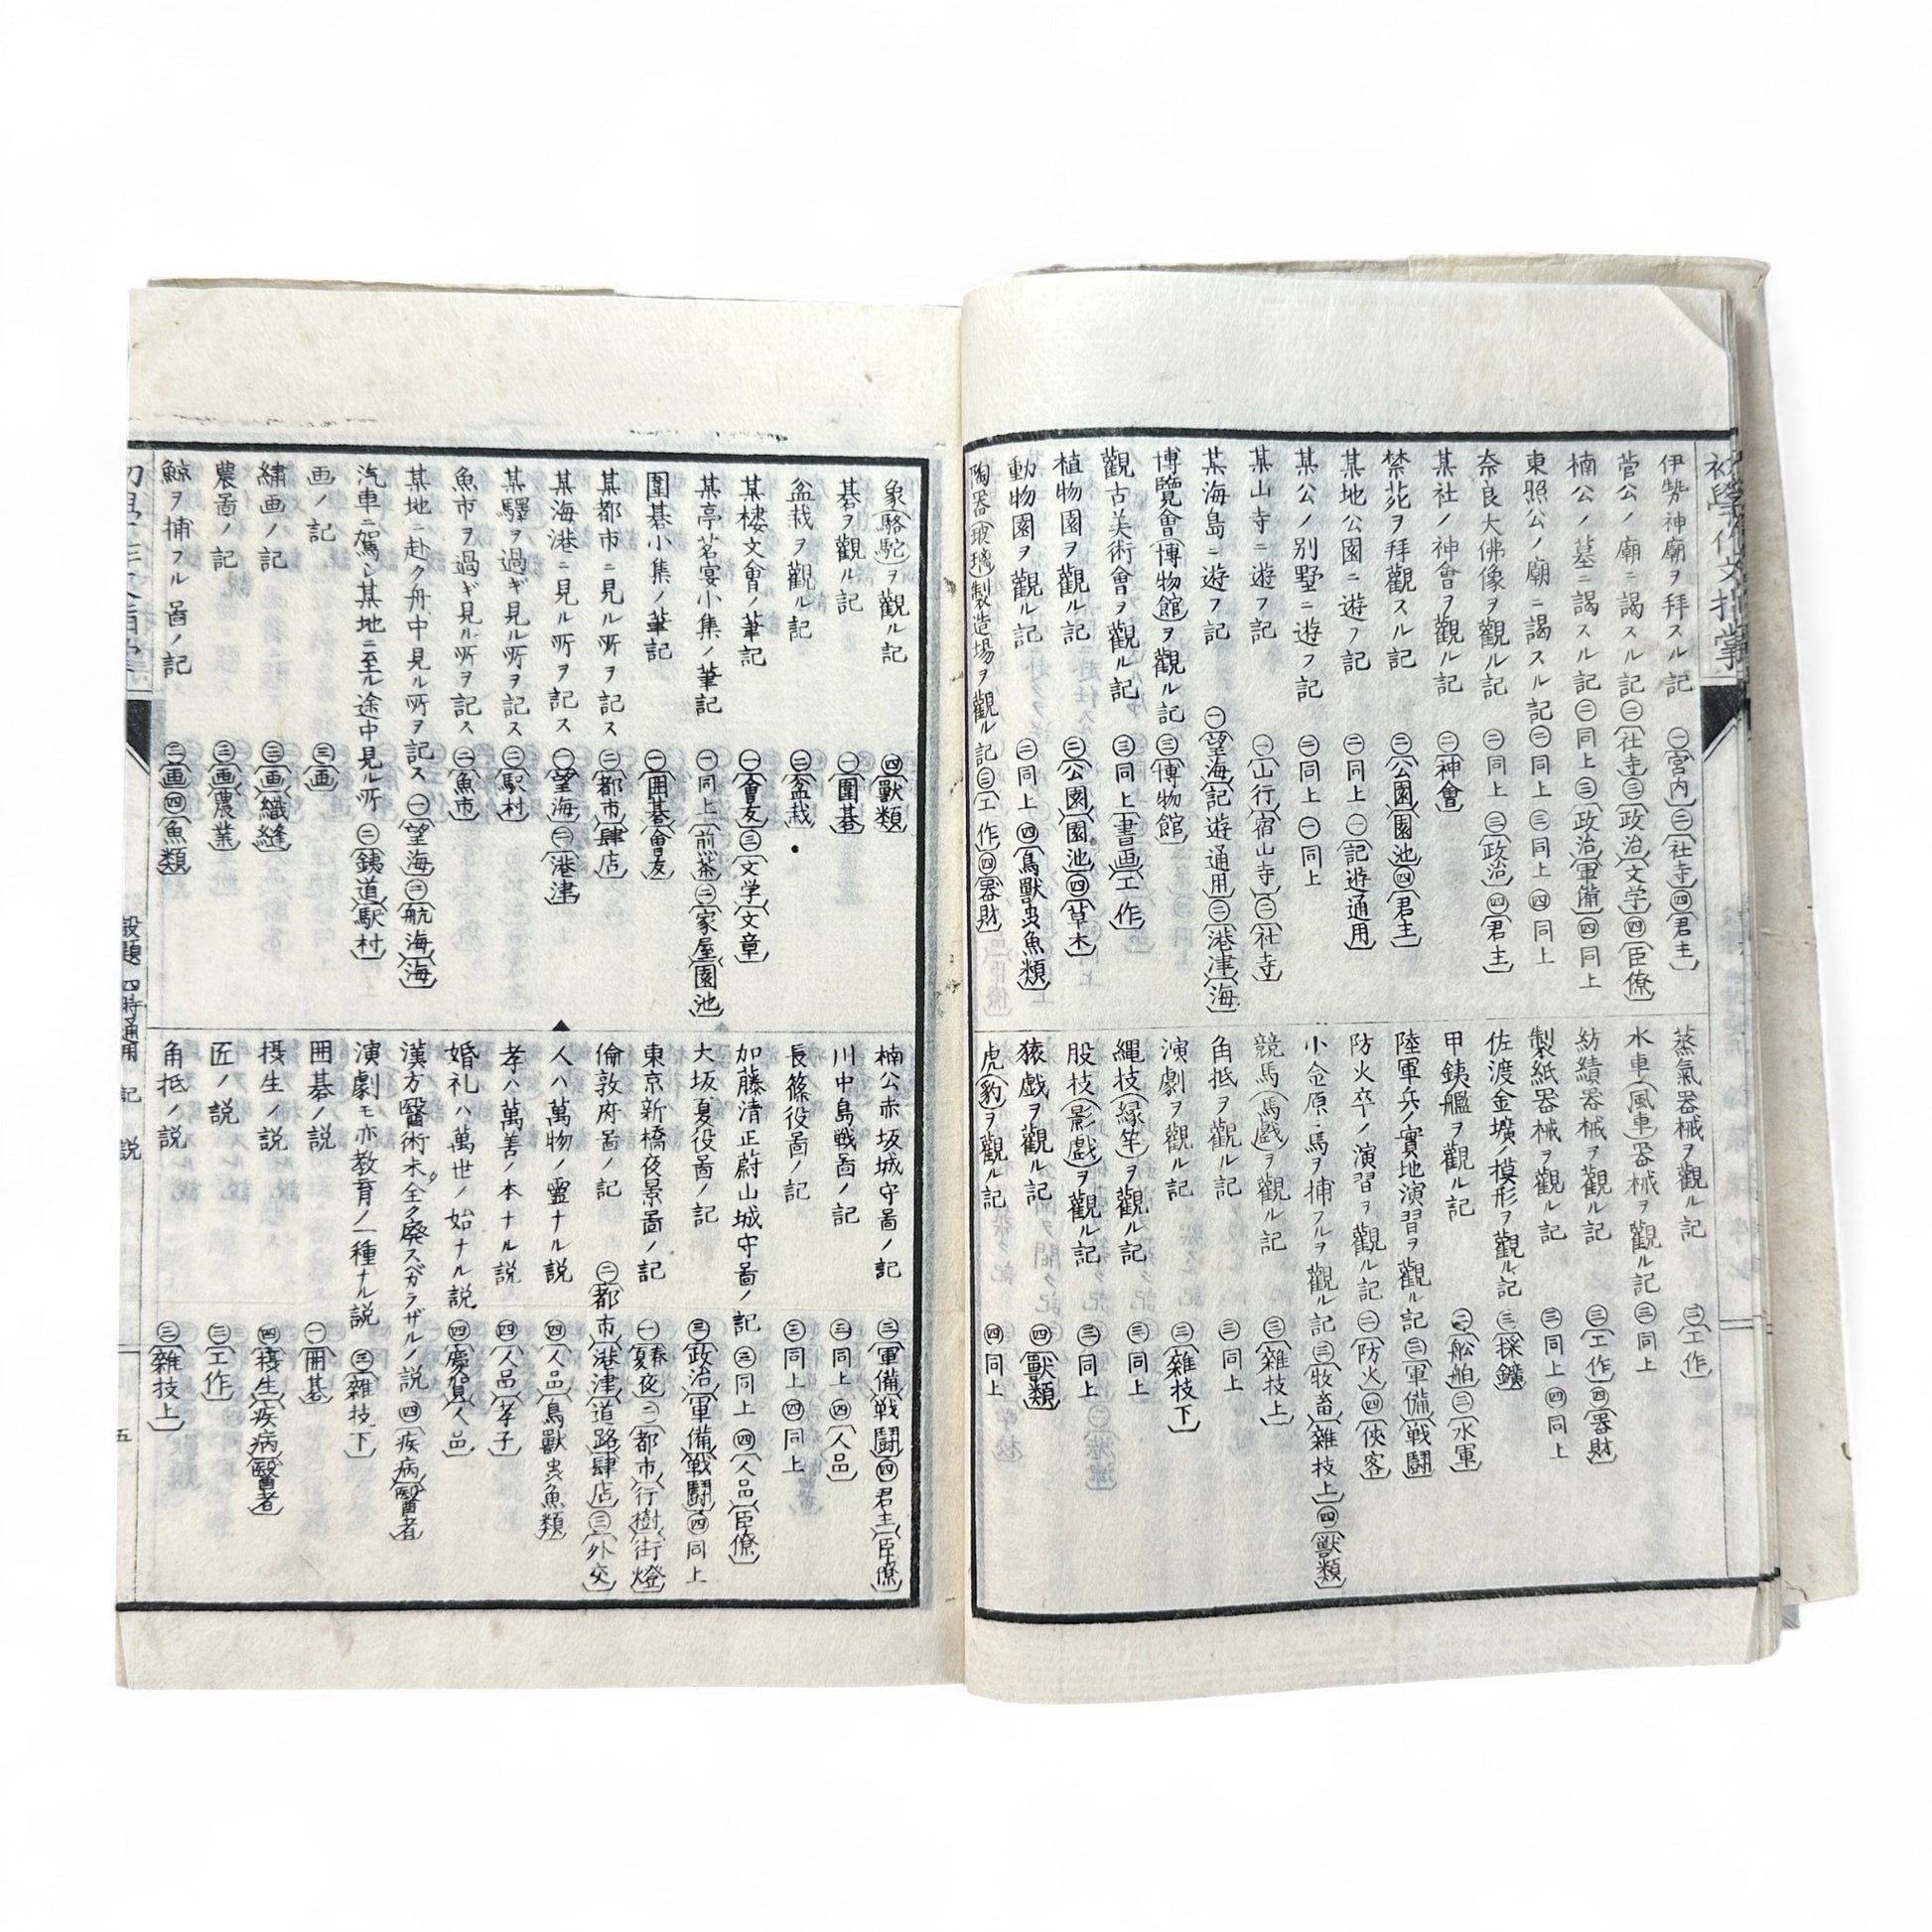 伊勢神廟ヲ拝スル記 ㊀(宮内)㊁(社寺)㊃(君主)
菅公ノ廟ニ謁スル記㊁(社寺)㊂(政治)(文学)㊃(臣僚)
楠公ノ墓ニ謁スル記㊁同上㊂(政治)(軍備)㊃同上
東照公ノ廟ニ謁スル記㊁同上㊂同上㊃同上
奈良大佛像ヲ觀ル記 ㊁同上 ㊂(政治)㊃(君主)
某社ノ神會ヲ觀ル記 ㊁(神會)
禁苑ヲ拜觀スル記 ㊁(公園)(園池)㊃(君主)
某地公園ニ遊フ記 ㊁同上㊀(記遊通用)
某公ノ別墅ニ遊フ記 ㊁同上㊀同上
某山寺ニ遊フ記 ㊀(山行)(宿山寺)㊁(社寺)
某海島ニ遊フ記 ㊀(望海)(記遊通用)㊁(港津)(海)
博覽會(博物館)ヲ觀ル記㊂(博物館)
觀古美術會ヲ觀ル記 ㊂同上(書画)(工作)
植物園ヲ觀ル記 ㊁(公園)(園池)㊃(草木)
動物園ヲ觀ル記 ㊁同上㊃(鳥獸虫魚類)
陶器(玻璃)製造場ヲ觀ル記㊂(工作)㊃(器財)
蒸氣器械ヲ觀ル記 ㊂(工作)
水車(風車)器械ヲ觀ル記 ㊂同上
紡績器械ヲ觀ル記 ㊂(工作)㊃(器財)
製紙器械ヲ觀ル記 ㊂同上㊃同上
佐渡金壙ノ模形ヲ觀ル記 ㊂(採鑛)
甲銕艦ヲ觀ル記 ㊁(舩舶)㊂(水軍)
陸軍兵ノ實地演習ヲ觀ル記㊂(軍備)(戦鬪)
防火卒ノ演習ヲ觀ル記 ㊁(防火)㊃(俠客)
小金原ニ馬ヲ捕フルヲ觀ル記㊂(牧畜)(雜技上)㊃(獸類)
競馬(馬戲)ヲ觀ル記 ㊂(雜技上)
角抵ヲ觀ル記 ㊂同上
演劇ヲ觀ル記 ㊂(雜技下)
縄技(縁竿)ヲ觀ル記 ㊂同上
股技(影戲)ヲ觀ル記 ㊂同上
猿戲ヲ觀ル記 ㊃(獸類)
虎(豹)ヲ觀ル記 ㊃同上
象(駱駝)ヲ觀ル記 ㊃(獸類)
碁ヲ觀ル記 ㊀(圍碁)
盆栽ヲ觀ル記 ㊁(盆栽)
某樓文會ノ筆記 ㊀(會友)㊂(文学)(文章)
某亭茗宴小集ノ筆記 ㊀同上(煎茶)㊁(家屋)(園池)
圍碁小集ノ筆記 ㊀(囲碁)(會友)
某都市ニ見ル所ヲ記ス ㊁(都市)(肆店)
某海港ニ見ル所ヲ記ス ㊀(望海)㊁(港津)
某驛ヲ過ギ見ル所ヲ記ス ㊁(駅村)
魚市ヲ過ギ見ル所ヲ記ス ㊁(魚市)
某地ニ赴ク舟中見ル所ヲ記ス ㊀(望海)㊁(航海)(海)
汽車ニ駕シ某地ニ至ル途中見ル所 ㊁(銕道)(駅村)
画ノ記 ㊂(画)
繍画ノ記 ㊂(画)(織縫)
農啚ノ記 ㊂(画)(農業)
鯨ヲ捕フル啚ノ記 ㊂(画)㊃(魚類)
楠公赤坂城守啚ノ記 ㊂(軍備)(戦鬪)㊃(君主)(臣僚)
川中島戦啚ノ記 ㊂同上㊃(人品)
長篠役啚ノ記 ㊂同上㊃同上
加藤清正蔚山城守啚ノ記㊂同上㊃(人品)(臣僚)
大坂夏役啚ノ記 ㊂(政治)(軍備)(戦鬪)㊃同上
東京新橋夜景啚ノ記 ㊀(春夏夜)㊁(都市)(行樹街燈)
倫敦府啚ノ記 ㊁(都市)(港津)(道路)(肆店)㊂(外交)
人ハ萬物ノ靈ナル説 ㊃(人品)(鳥獸虫魚類)
孝ハ萬善ノ本ナル説 ㊃(人品)(孝子)
婚礼ハ萬世ノ始ナル説 ㊃(慶賀)(人品)
漢方醫術未全ク廢スベカラザルノ説 ㊃(疾病)(醫者)
演劇モ亦教育ノ一種ナル説 ㊂(雜技下)
囲碁ノ説 ㊀(囲碁)
摂生ノ説 ㊃(摂生)(疾病)(醫者)
匠ノ説 ㊂(工作)
角抵ノ説 ㊂(雜技上)
設題 四時通用 記 説 五